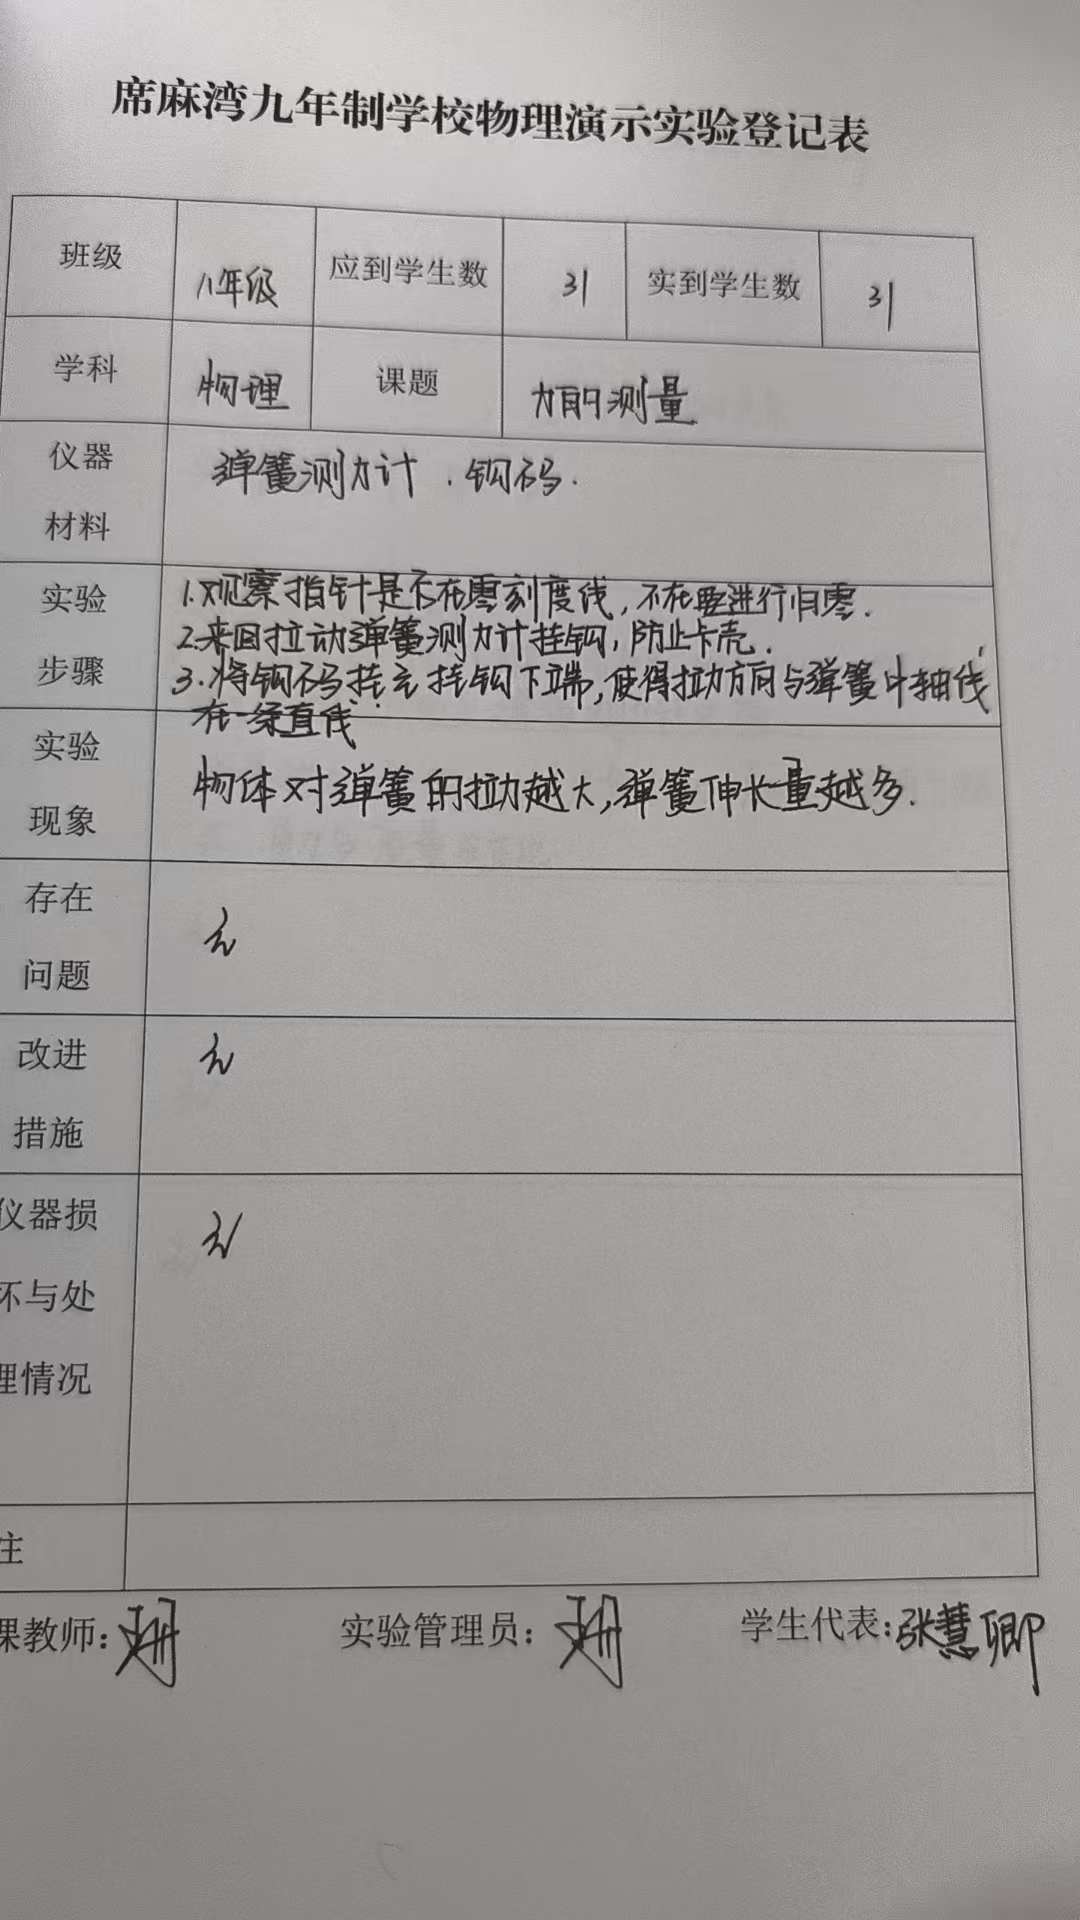 席麻湾九年制学校物理演示实验登记表
班级 八年级 应到学生数 31 实到学生数 31
学科 物理 课题 力的测量
仪器 弹簧测力计、钩码.
材料
实验 1.观察指针是否在零刻度线,不在要进行归零.
2.来回拉动弹簧测力计挂钩,防止卡壳.
步骤 3.将钩码挂在挂钩下端,使得拉力方向与弹簧中轴线
在一条直线
实验
物体对弹簧的拉力越大,弹簧伸长量越多.
现象
存在
无
问题
改进 无
措施
仪器损 无
坏与处
理情况
注
课教师: 实验管理员: 学生代表:张慧卿